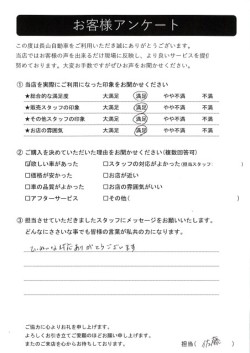 お客様アンケート
この度は長山自動車をご利用いただき誠にありがとうございます。
当店ではお客様の声を出来るだけ現場に反映し、より良いサービスを提供
努めております。大変お手数ですがぜひお声をお聞かせください。
① 当店を実際にご利用になった印象をお聞かせください
★総合的な満足度 大満足 満足 やや不満 不満
★販売スタッフの印象 大満足 満足 やや不満 不満
★その他スタッフの印象 大満足 満足 やや不満 不満
★お店の雰囲気 大満足 満足 やや不満 不満
② ご購入を決めていただいた理由をお聞かせください(複数回答可)
☑欲しい車があった □スタッフの対応がよかった(担当スタッフ: )
□価格が安かった □お店が近い
□車の品質がよかった □お店の雰囲気がいい
□アフターサービス □その他( )
③ 担当させていただきましたスタッフにメッセージをお願いいたします。
どんなにささいな事でも皆様の言葉が私共の力になります。
ありがとうございます
ご協力に心よりお礼を申し上げます。
よろしくお引き立てご愛顧のほどお願い申し上げます。
またのご来店を心からお待ちしております。
担当( )